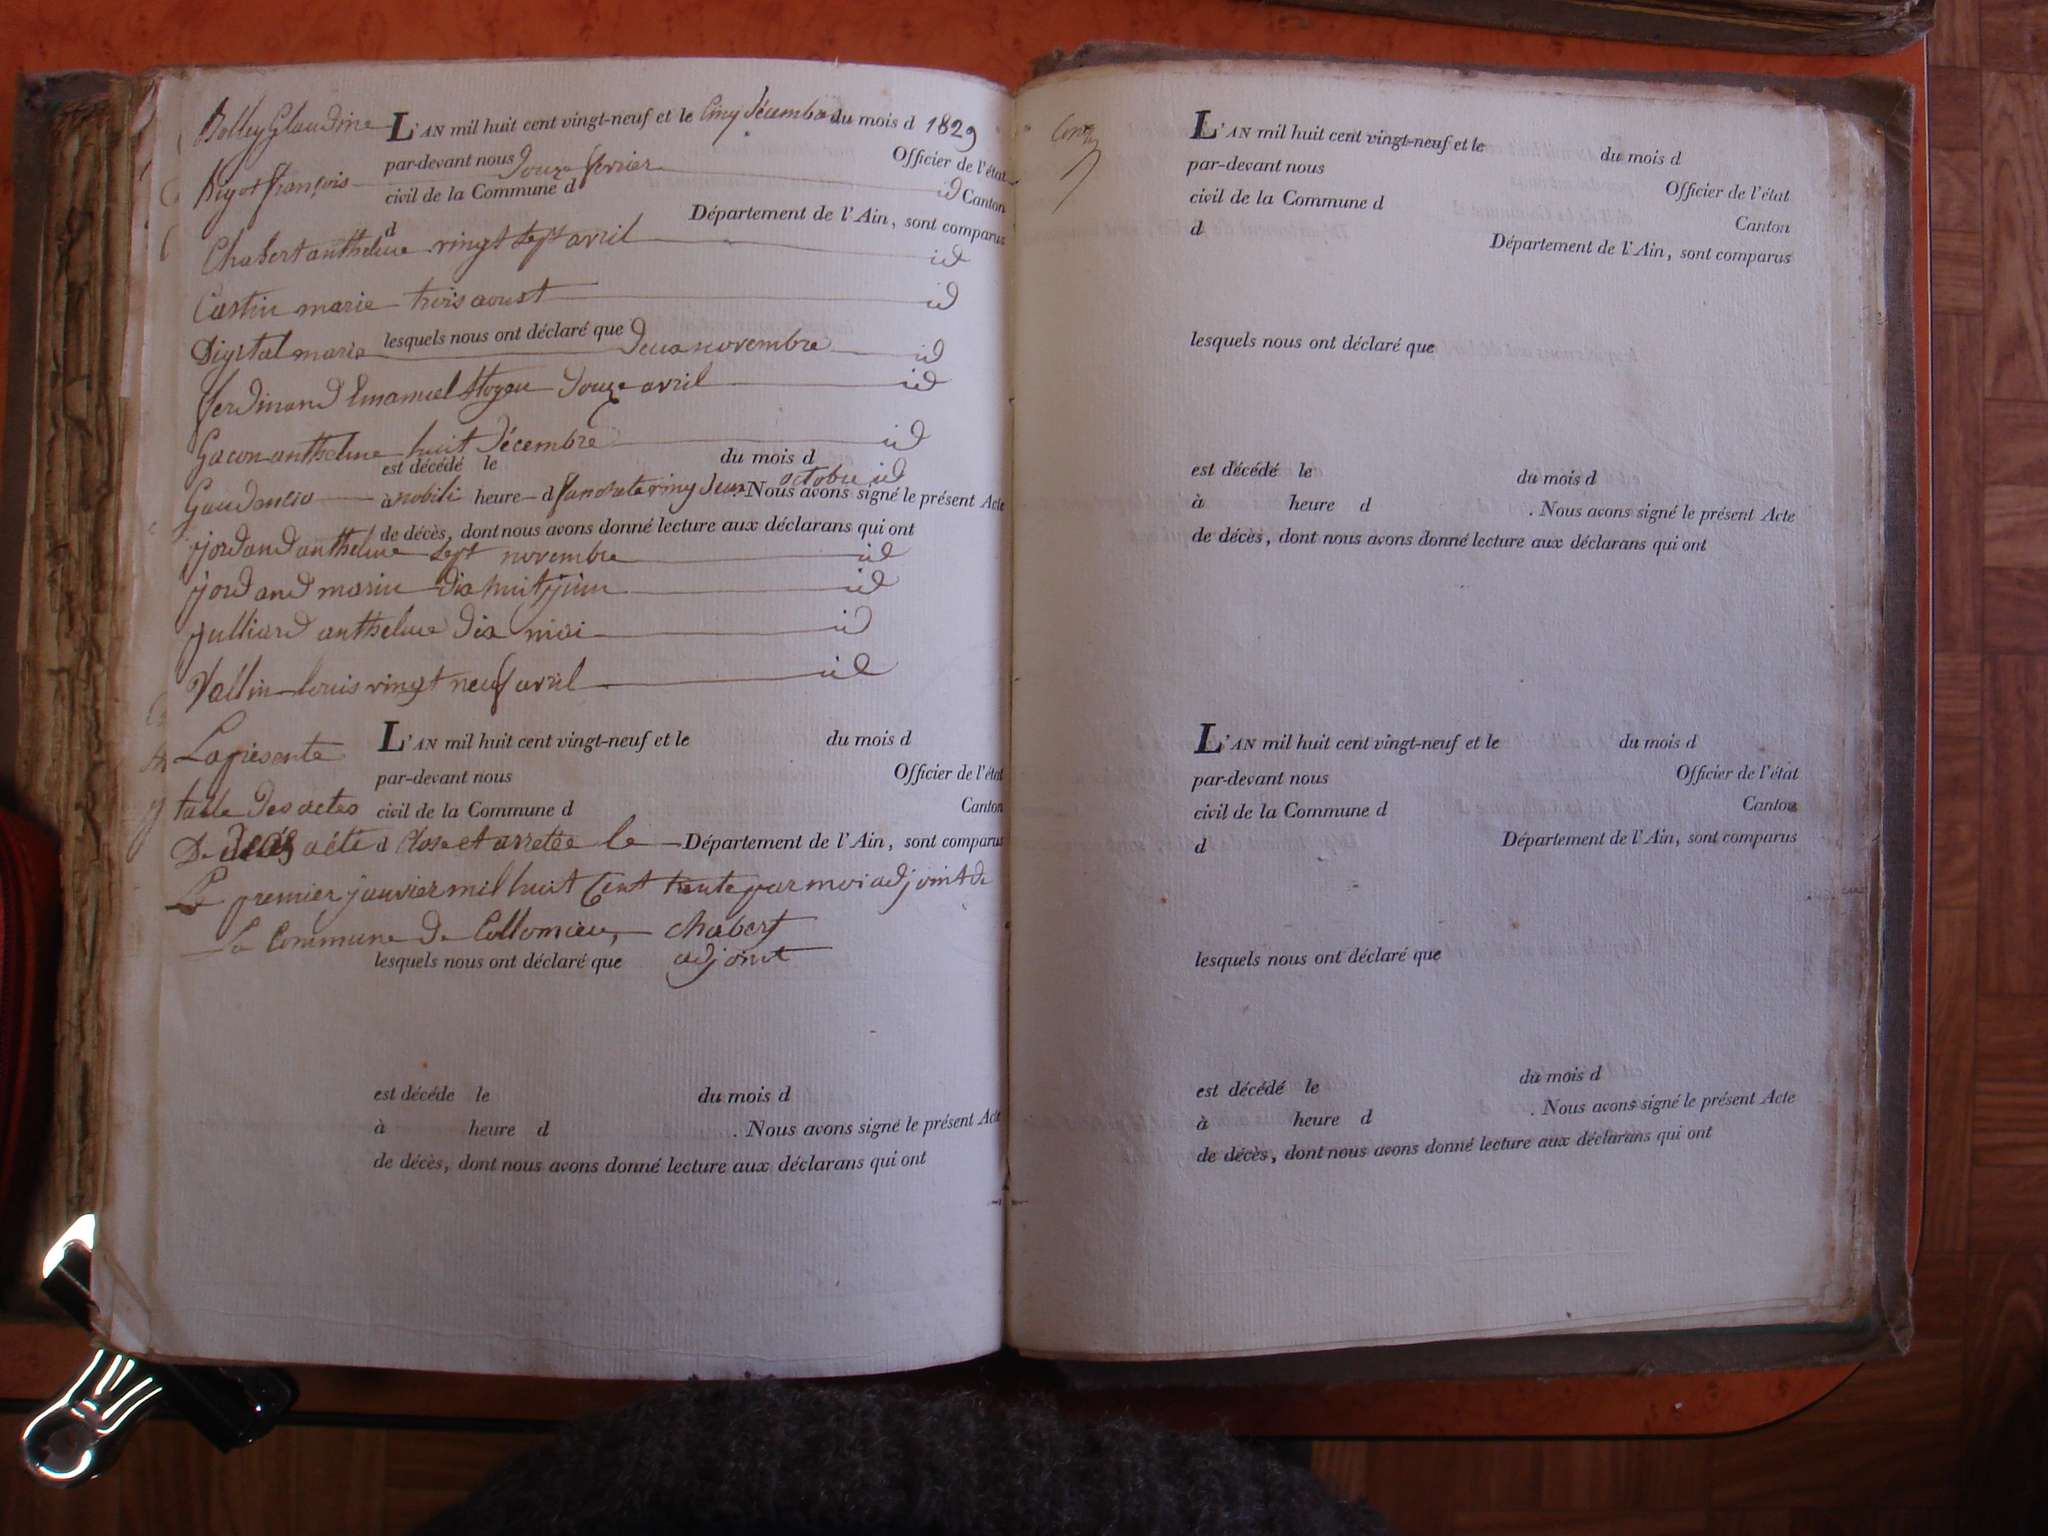 Bolley Glaudine L'AN mil huit cent vingt-neuf et le cinq décembre du mois d 1829
par-devant nous Officier de l'état
Bigot françois douze fevrier id
civil de la Commune d Canton
d Département de l'Ain, sont comparus
Chabert anthelme vingt sept avril id
marie trois aoust id
lesquels nous ont déclaré que
marie deux novembre id
ferdinand Emanuel douze avril id
Gacon anthelme huit décembre id
est décédé le du mois d
octobre id
à heure d . Nous avons signé le présent Acte
de décès, dont nous avons donné lecture aux déclarans qui ont
jordand anthelme sept novembre id
jordand marie dix huit juin id
julliard anthelme dix mai id
Vallin louis vingt neuf avril id
L'AN mil huit cent vingt-neuf et le du mois d
La présente
par-devant nous Officier de l'état
table des actes civil de la Commune d Canton
De décés a été d close et arretée le Département de l'Ain, sont comparus
Le premier janvier mil huit Cent trente par moi adjoint de
La Commune De Collomieu, chabert
lesquels nous ont déclaré que adjoint
est décéde le du mois d
à heure d . Nous avons signé le présent Acte
de décès, dont nous avons donné lecture aux déclarans qui ont
L'AN mil huit cent vingt-neuf et le du mois d
par-devant nous Officier de l'état
civil de la Commune d Canton
d Département de l'Ain, sont comparus
lesquels nous ont déclaré que
est décédé le du mois d
à heure d . Nous avons signé le présent Acte
de décès, dont nous avons donné lecture aux déclarans qui ont
L'AN mil huit cent vingt-neuf et le du mois d
par-devant nous Officier de l'état
civil de la Commune d Canton
d Département de l'Ain, sont comparus
lesquels nous ont déclaré que
est décédé le du mois d
à heure d . Nous avons signé le présent Acte
de décès, dont nous avons donné lecture aux déclarans qui ont